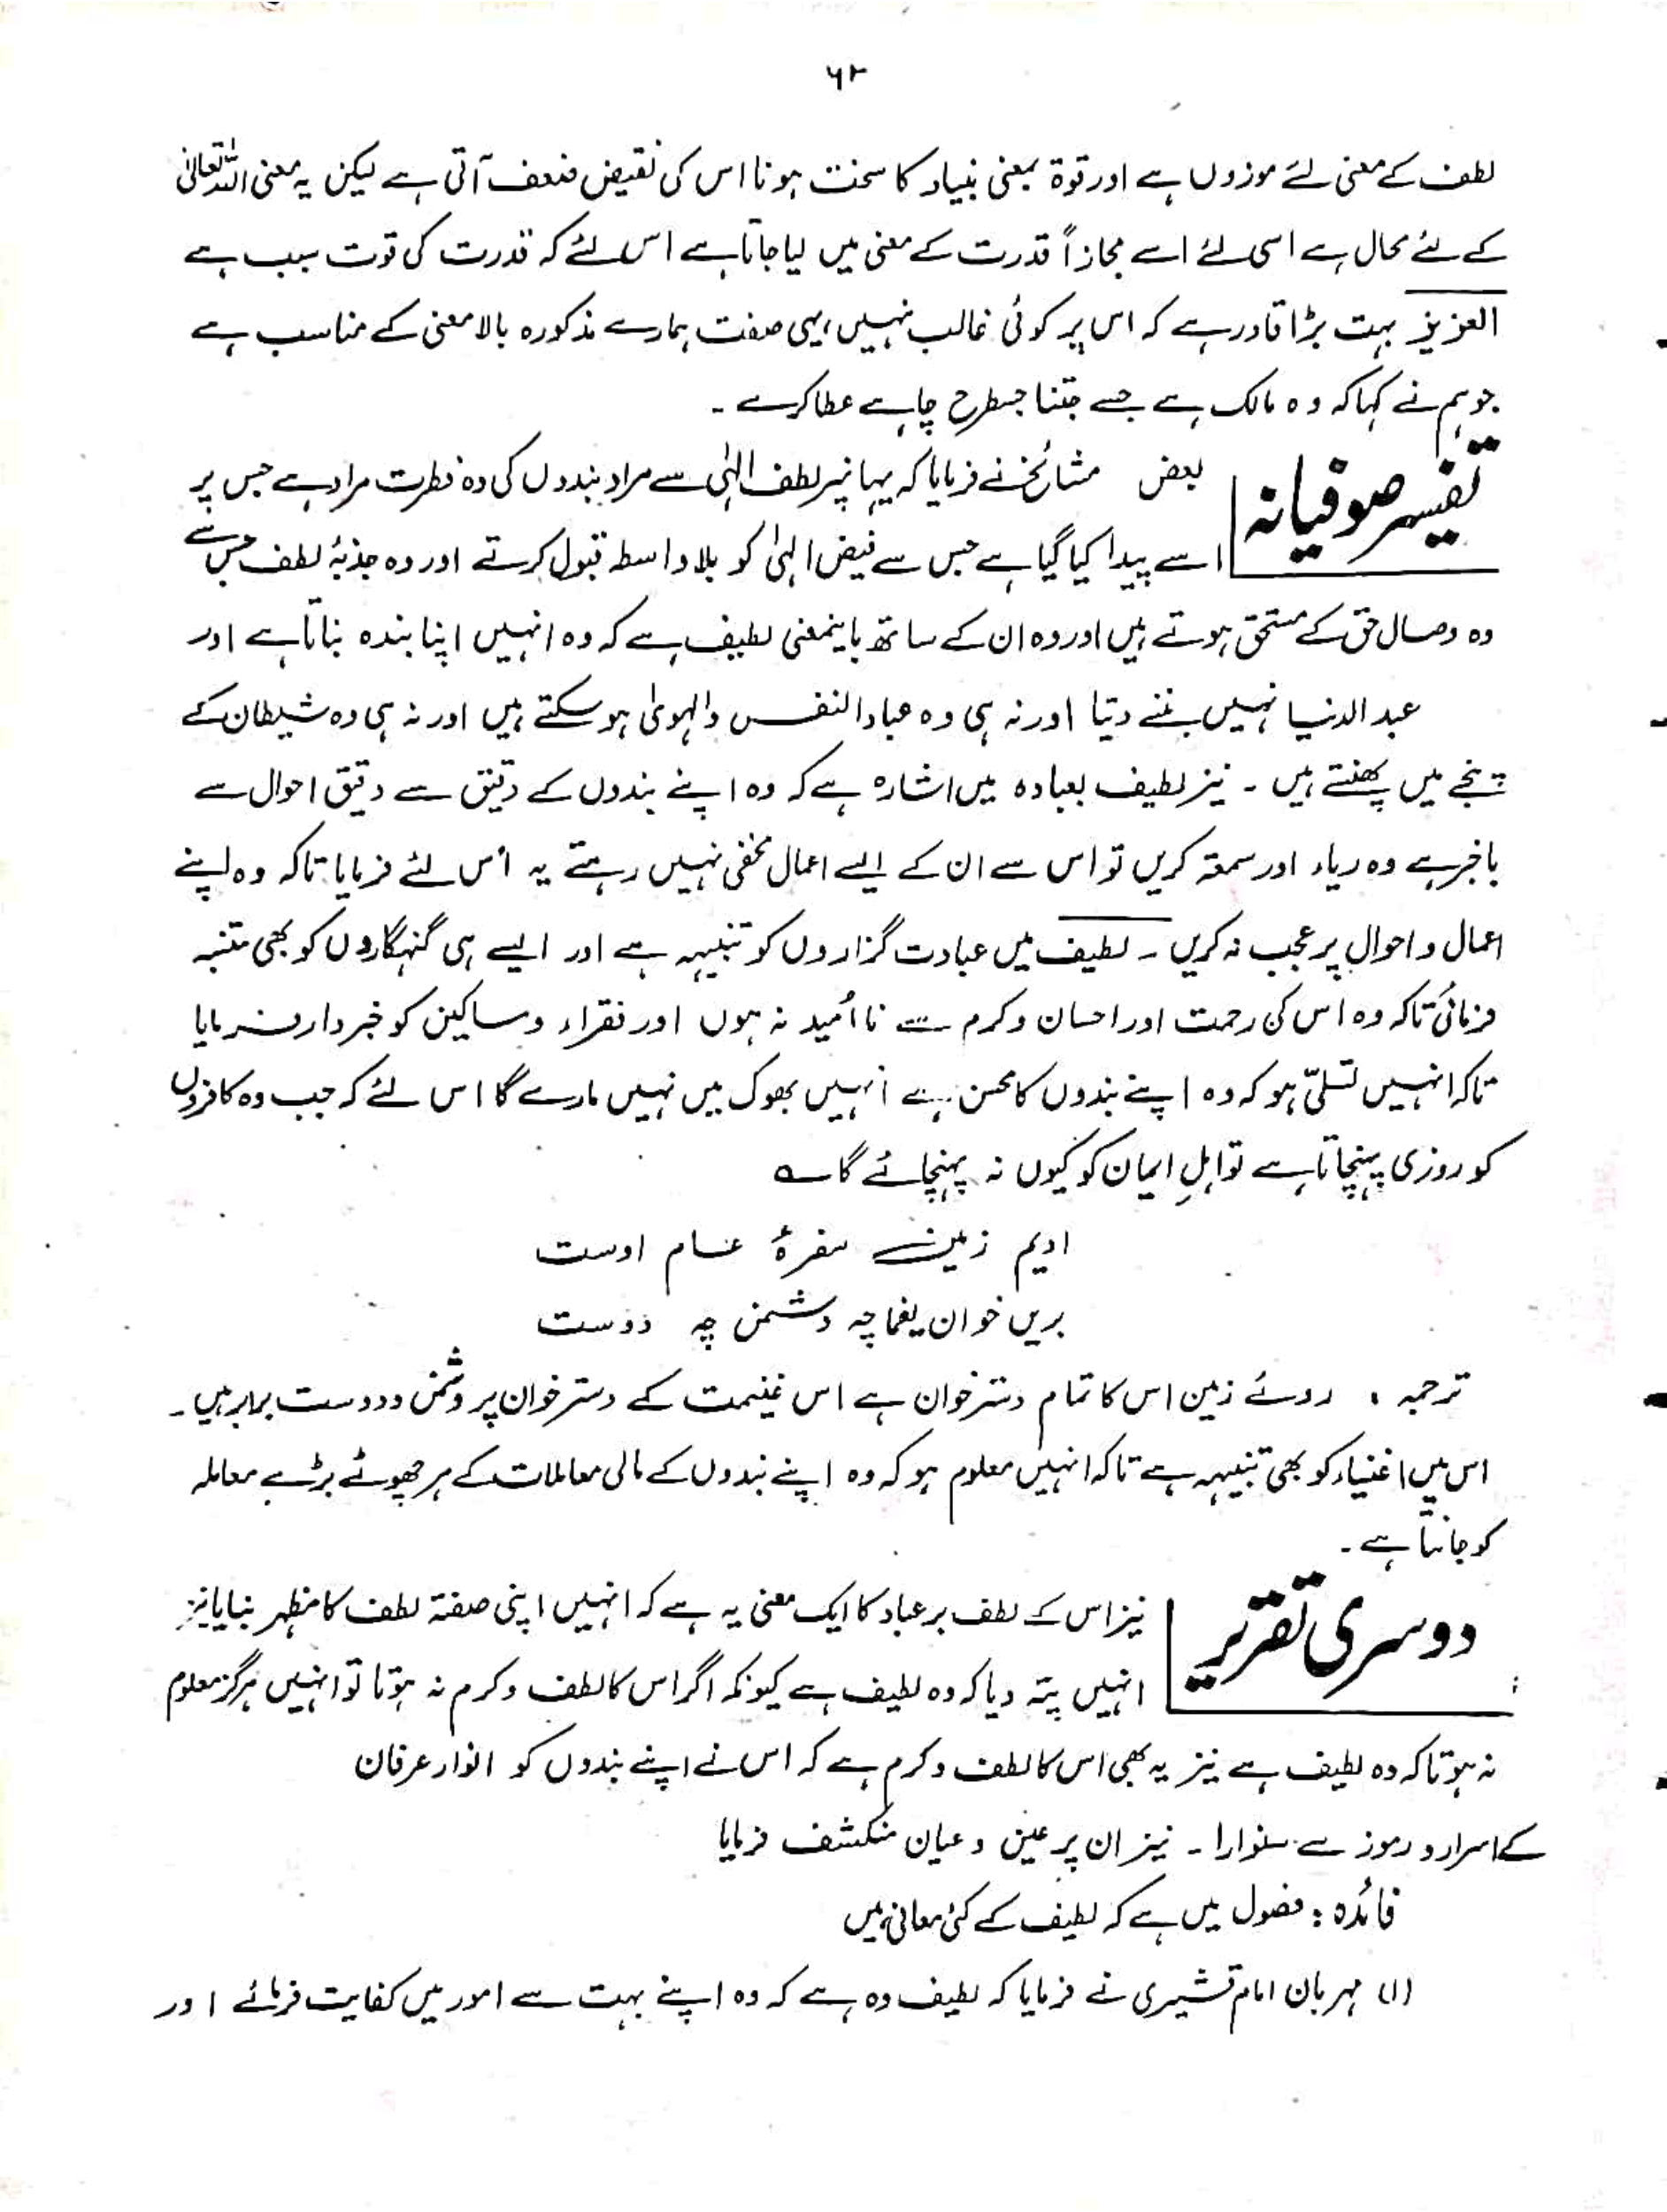 ۶۲
لطف کے معنی لئے موزوں ہے اور قوۃ بمعنی بنیاد کا سخت ہونا اس کی نقیض ضعف آتی ہے لیکن یہ معنی اللہ تعالیٰ
کے لئے محال ہے اسی لئے اسے مجازاً قدرت کے معنی میں لیا جاتا ہے اس لئے کہ قدرت کی قوت سبب ہے
العزیز بہت بڑا قادر ہے کہ اس پر کوئی غالب نہیں، یہی صفت ہمارے مذکورہ بالا معنی کے مناسب ہے
جو ہم نے کہا کہ وہ مالک ہے جسے جتنا جسطرح چاہے عطا کرے ۔
تفسیر صوفیانہ
بعض مشائخ نے فرمایا کہ یہانپر لطف الٰہی سے مراد بندوں کی وہ فطرت مراد ہے جس پر
اسے پیدا کیا گیا ہے جس سے فیض الہیٰ کو بلا واسطہ قبول کرتے اور وہ جذبۂ لطف جس سے
وہ وصال حق کے مستحق ہوتے ہیں اور وہ ان کے ساتھ باینمعنی لطیف ہے کہ وہ انہیں اپنا بندہ بناتا ہے اور
عبد الدنیا نہیں بننے دیتا اور نہ ہی وہ عباد النفس والہویٰ ہو سکتے ہیں اور نہ ہی وہ شیطان کے
پنجے میں پھنستے ہیں ۔ نیز لطیف بعبادہ میں اشارہ ہے کہ وہ اپنے بندوں کے دقیق سے دقیق احوال سے
باخبر ہے وہ ریاء اور سمعۃ کریں تو اس سے ان کے ایسے اعمال مخفی نہیں رہتے یہ اُس لئے فرمایا تاکہ وہ اپنے
اعمال و احوال پر عجب نہ کریں ۔ لطیف میں عبادت گزاروں کو تنبیہہ ہے اور ایسے ہی گنہگاروں کو بھی متنبہ
فرمائی تاکہ وہ اس کی رحمت اور احسان و کرم سے نا اُمید نہ ہوں اور فقراء و مساکین کو خبردار فرمایا
تاکہ انہیں تسلیّ ہو کہ وہ اپنے بندوں کا محسن ہے انہیں بھوک میں نہیں مارے گا اس لئے کہ جب وہ کافروں
کو روزی پہنچاتا ہے تو اہلِ ایمان کو کیوں نہ پہنچائے گا ؎
ادیم زمین سفرۂ عام اوست
بریں خوان یغما چہ دشمن چہ دوست
ترجمہ ، روئے زمین اس کا تمام دسترخوان ہے اس غنیمت کے دسترخوان پر دشمن و دوست برابر ہیں ۔
اس میں اغنیاء کو بھی تنبیہہ ہے تاکہ انہیں معلوم ہو کہ وہ اپنے بندوں کے مالی معاملات کے ہر چھوٹے بڑے معاملہ
کو جانتا ہے ۔
دوسری تقریر
نیز اس کے لطف بر عباد کا ایک معنی یہ ہے کہ انہیں اپنی صفۃ لطف کا مظہر بنایا نیز
انہیں پتہ دیا کہ وہ لطیف ہے کیونکہ اگر اس کا لطف و کرم نہ ہوتا تو انہیں ہرگز معلوم
نہ ہوتا کہ وہ لطیف ہے نیز یہ بھی اس کا لطف و کرم ہے کہ اس نے اپنے بندوں کو انوار عرفان
کے اسرار و رموز سے سنوارا ۔ نیز ان پر عین و عیان منکشف فرمایا
فائدہ : فصول میں ہے کہ لطیف کے کئی معانی ہیں
(۱) مہربان امام قشیری نے فرمایا کہ لطیف وہ ہے کہ وہ اپنے بہت سے امور میں کفایت فرمائے اور